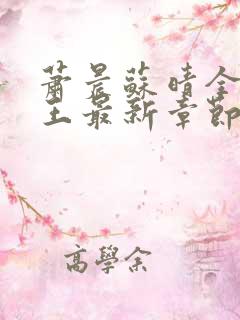 蕭晨蘇晴全
主最新章節
高學余